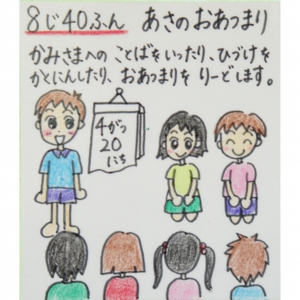 8じ40ふん　あさのおあつまり
かみさまへの ことばをいったり、ひづけを
かくにんしたり、おあつまりを りーどします。
4がつ
20
にち